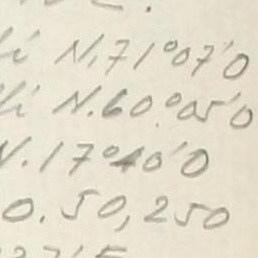 li N.71°07'0
li N.60°05'0
N.17°40'0
0.50,250